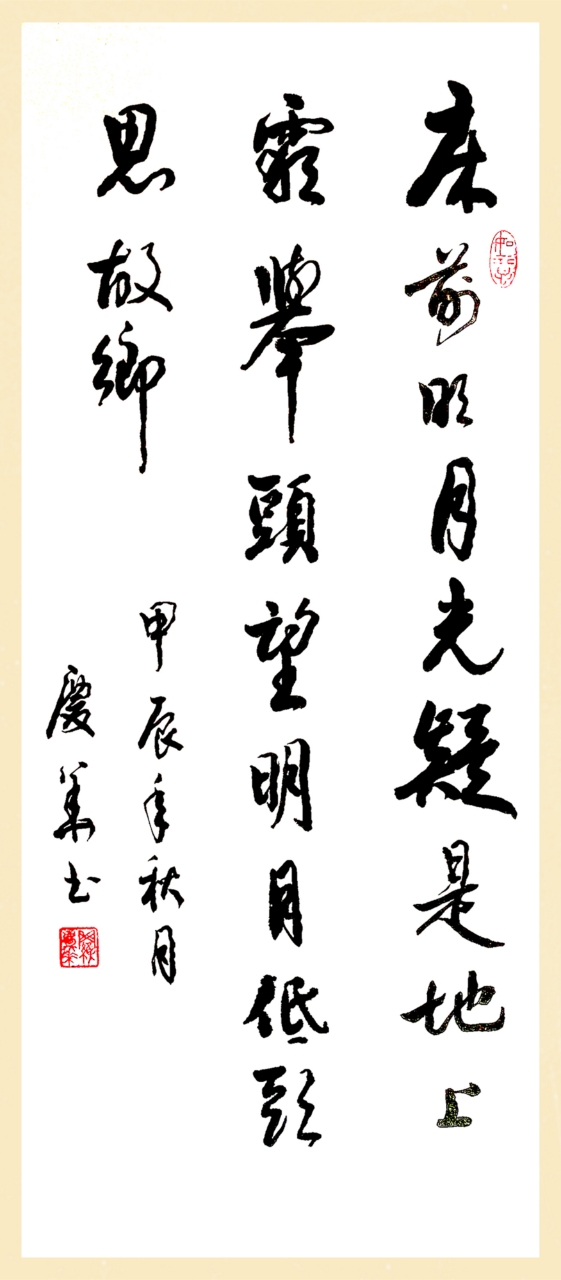 床前明月光疑是地上
霜舉頭望明月低頭
思故鄉
甲辰年秋月
慶華书